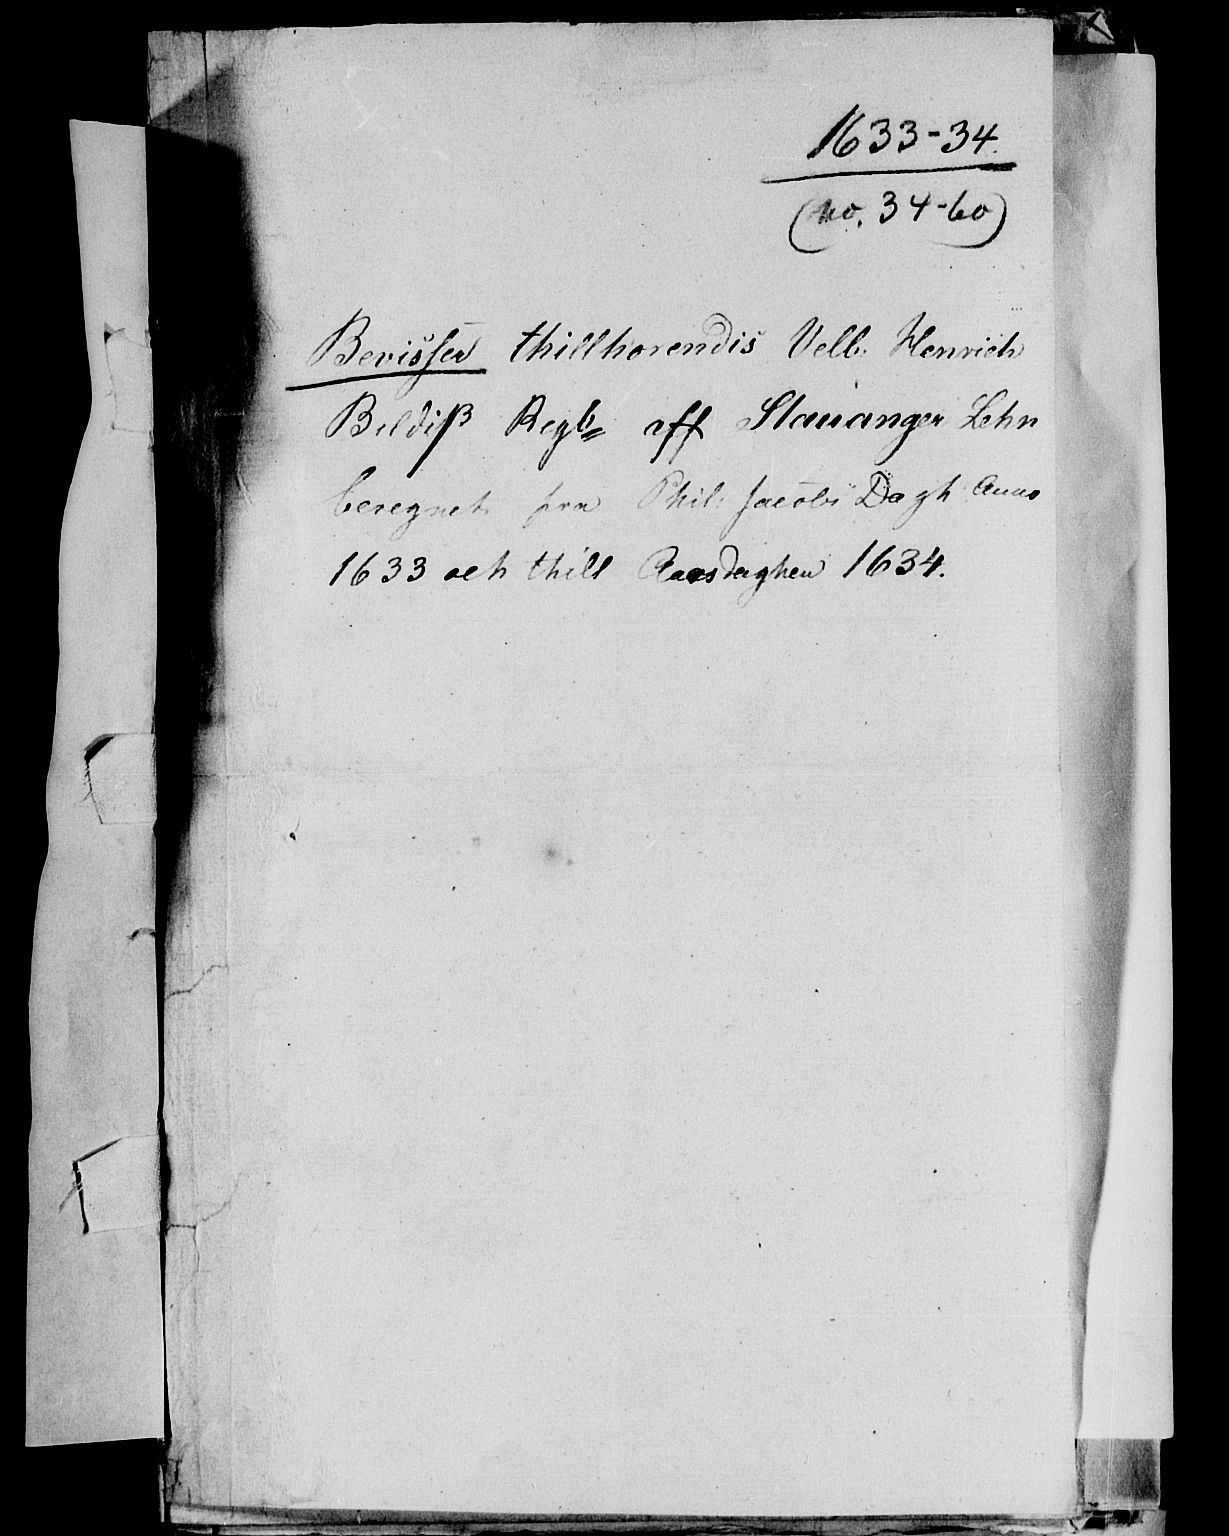 1633-34.
(no. 34-60)
Bevisser thillhörendis Velb: Henrich
Beldiß Regb= aff Stauanger Lehn
beregnet fra Phil: Jacobi Dagh Anno
1633 och thill Aarsdaghen 1634.